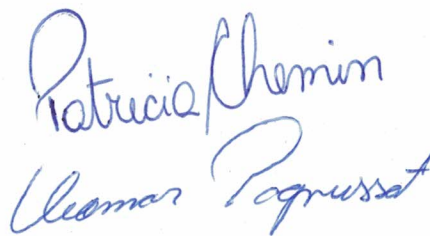 Patricia Chemin
Thomas Pagnussat